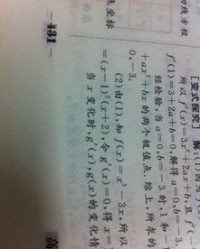 程
[变式探究] 解:(1)因
所以 f'(x)=3x²+2ax+b, 且 f'(-
f'(1)=3+2a+b=0, 解得 a=0,b=-3
经检验, 当 a=0,b=-3 时, 1 和 -1
+ax²+bx 的两个极值点. 综上, 所求的
0, -3.
(2)由(1), 知 f(x)=x³-3x, 所以
=(x-1)²(x+2), 令 g'(x)=0, 得 x=
当 x 变化时, g'(x), g(x) 的变化情
坐标
431